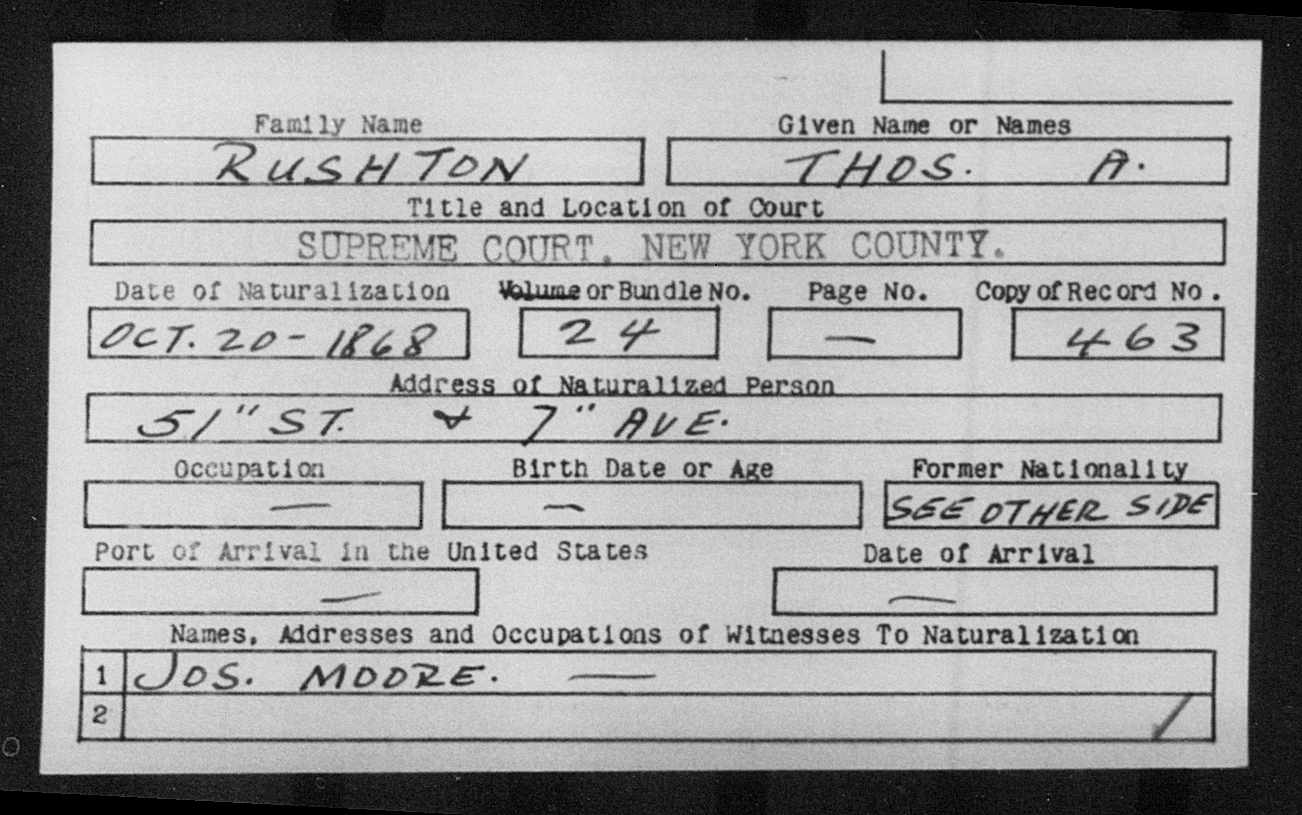 Family Name Given Name or Names
RUSHTON THOS. A.
Title and Location of Court
SUPREME COURT, NEW YORK COUNTY.
Date of Naturalization Volume or Bundle No. Page No. Copy of Record No.
OCT. 20 - 1868 24 — 463
Address of Naturalized Person
51" ST. & 7" AVE.
Occupation Birth Date or Age Former Nationality
— — SEE OTHER SIDE
Port of Arrival in the United States Date of Arrival
— —
Names, Addresses and Occupations of Witnesses To Naturalization
1 JOS. MOORE. —
2